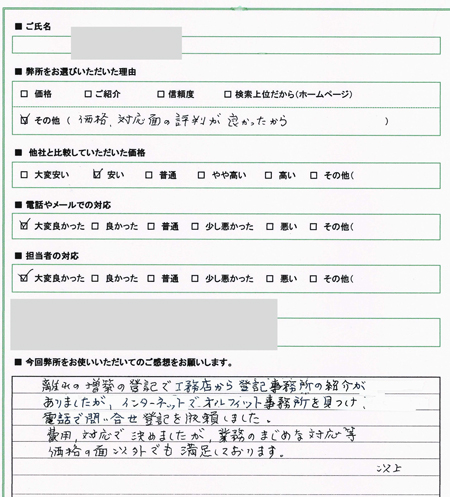 ■ ご氏名
■ 弊所をお選びいただいた理由
□ 価格 □ ご紹介 □ 信頼度 □ 検索上位だから(ホームページ)
☑ その他 ( 価格、対応面の評判が良かったから )
■ 他社と比較していただいた価格
□ 大変安い ☑ 安い □ 普通 □ やや高い □ 高い □ その他(
■ 電話やメールでの対応
☑ 大変良かった □ 良かった □ 普通 □ 少し悪かった □ 悪い □ その他(
■ 担当者の対応
☑ 大変良かった □ 良かった □ 普通 □ 少し悪かった □ 悪い □ その他(
■ 今回弊所をお使いいただいてのご感想をお願いします。
離れの増築の登記で工務店から登記事務所の紹介が
ありましたが、インターネットでオルフィット事務所を見つけ、
電話で問い合せ登記を依頼しました。
費用、対応で決めましたが、業務のまじめな対応等
価格の面以外でも満足しております。
以上